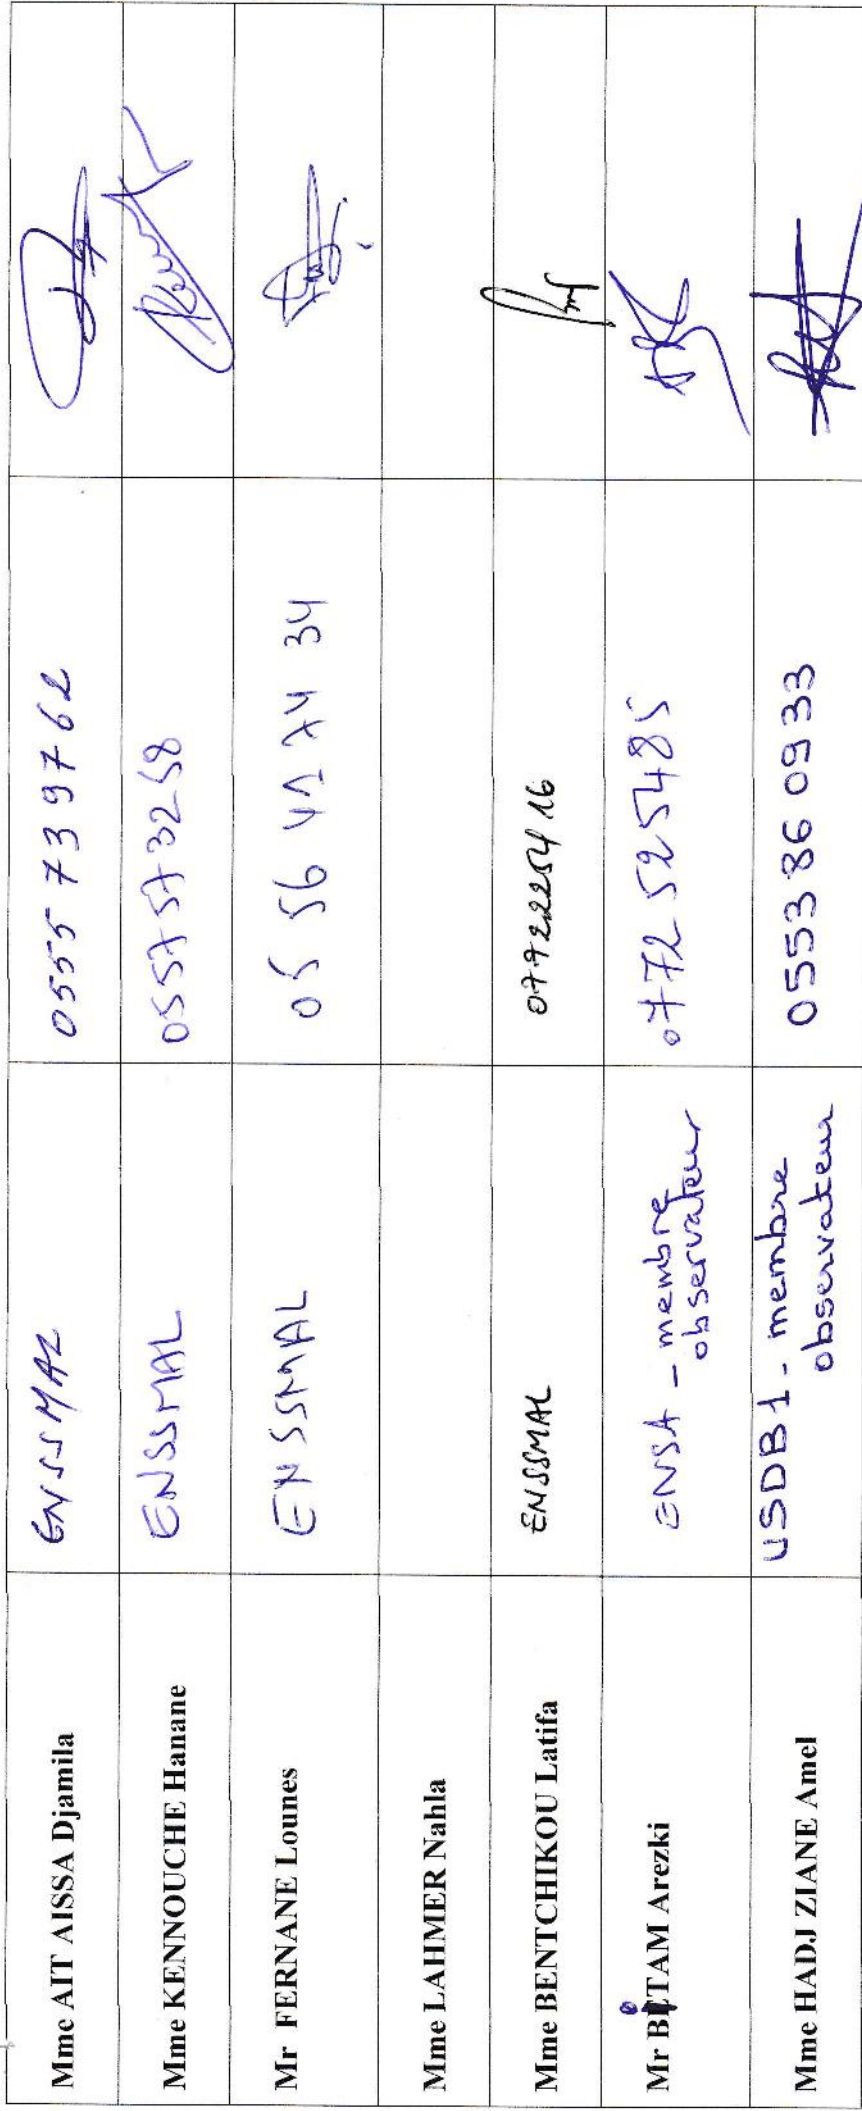 Mme AIT AISSA Djamila ENSSMAL 0555 739762
Mme KENNOUCHE Hanane ENSSMAL 0557573258
Mr FERNANE Lounes ENSSMAL 05 56 41 74 34
Mme LAHMER Nahla
Mme BENTCHIKOU Latifa ENSSMAL 0792225416
Mr BETAM Arezki ENSA - membre observateur 0772525485
Mme HADJ ZIANE Amel USDB1 - membre observateur 0553 86 09 33